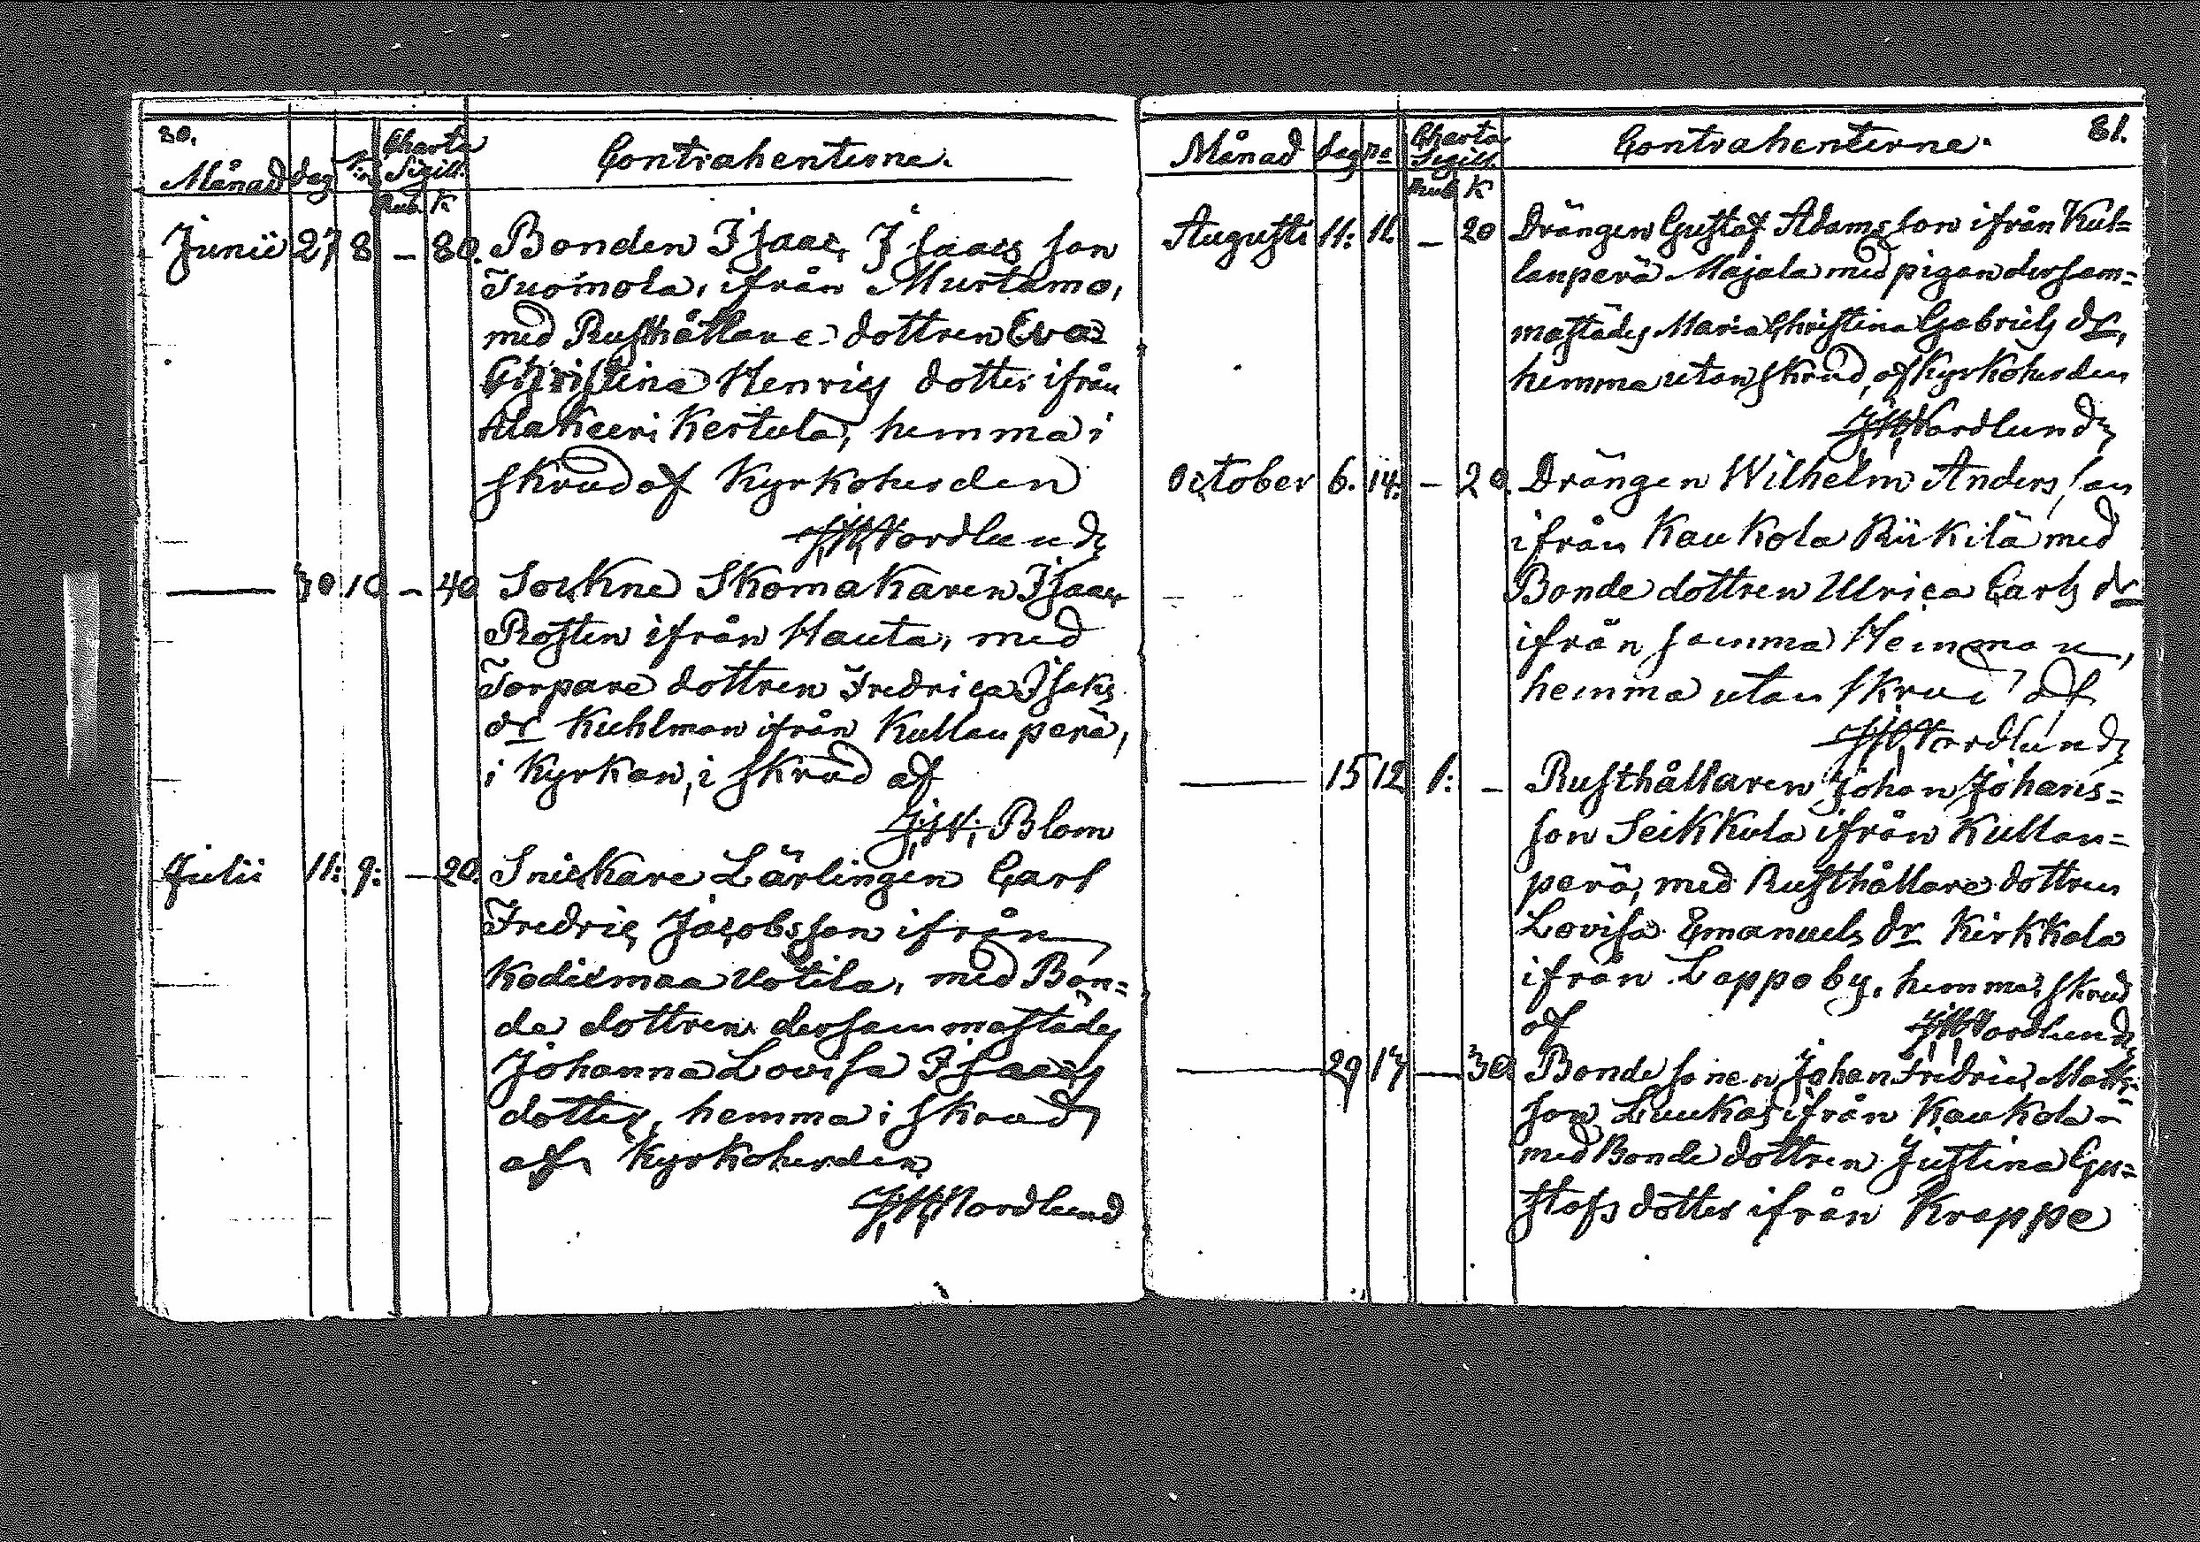 80.
Månad dag No Charta Sigill. Contrahenterne.
Rub. K
Junii 27 8 – 80. Bonden Isaac Isaacs son
Tuomola, ifrån Murtamo,
med Rusthållare dottren Eva
Christina Henrics dotter ifrån
Alakeeri Kertula, hemma i
skrud af Kyrkoherden
Nordlund
—— 30 10 – 40 Sockne Skomakaren Isaac
Rosten ifrån Hauta, med
Torpare dottren Fredrica Isaks
dr Kuhlman ifrån Kullanperä,
i Kyrkan, i skrud af
Blom
Julii 11: 9: – 20. Snickare Lärlingen Carl
Fredric Jacobsson ifrån
Kodiximaa Uotila, med Bon=
de dottren dersammastädes
Johanna Lovisa Isaacs
dotter, hemma i skrud
af Kyrkoherden
Nordlund
81.
Månad dag no Charta Sigill. Contrahenterne.
Rub K
Augusti 11: 11. – 20 Drängen Gustaf Adamsson ifrån Kul=
lanperä Majala med pigan dersam=
mastädes Maria Christina Gabriels dr,
hemma utan skrud, af Kyrkoherden
Nordlund
October 6. 14. – 20. Drängen Wilhelm Anders son
ifrån Kaukola Riikilä med
Bonde dottren Ulrica Carls dr
ifrån samma Hemman,
hemma utan skrud af
Nordlund
—— 15 12 1: – Rusthållaren Johan Johans=
son Seikkula ifrån Kullan=
perä, med Rusthållare dottren
Lovisa Emanuels dr Kirkkola
ifrån Lappo by, hemma i skrud
af Nordlund
—— 29 13 – 30 Bonde sonen Johan Fredric Matts=
son Luukas ifrån Kaukola
med Bonde dottren Justina Gu=
stafs dotter ifrån Kroppe